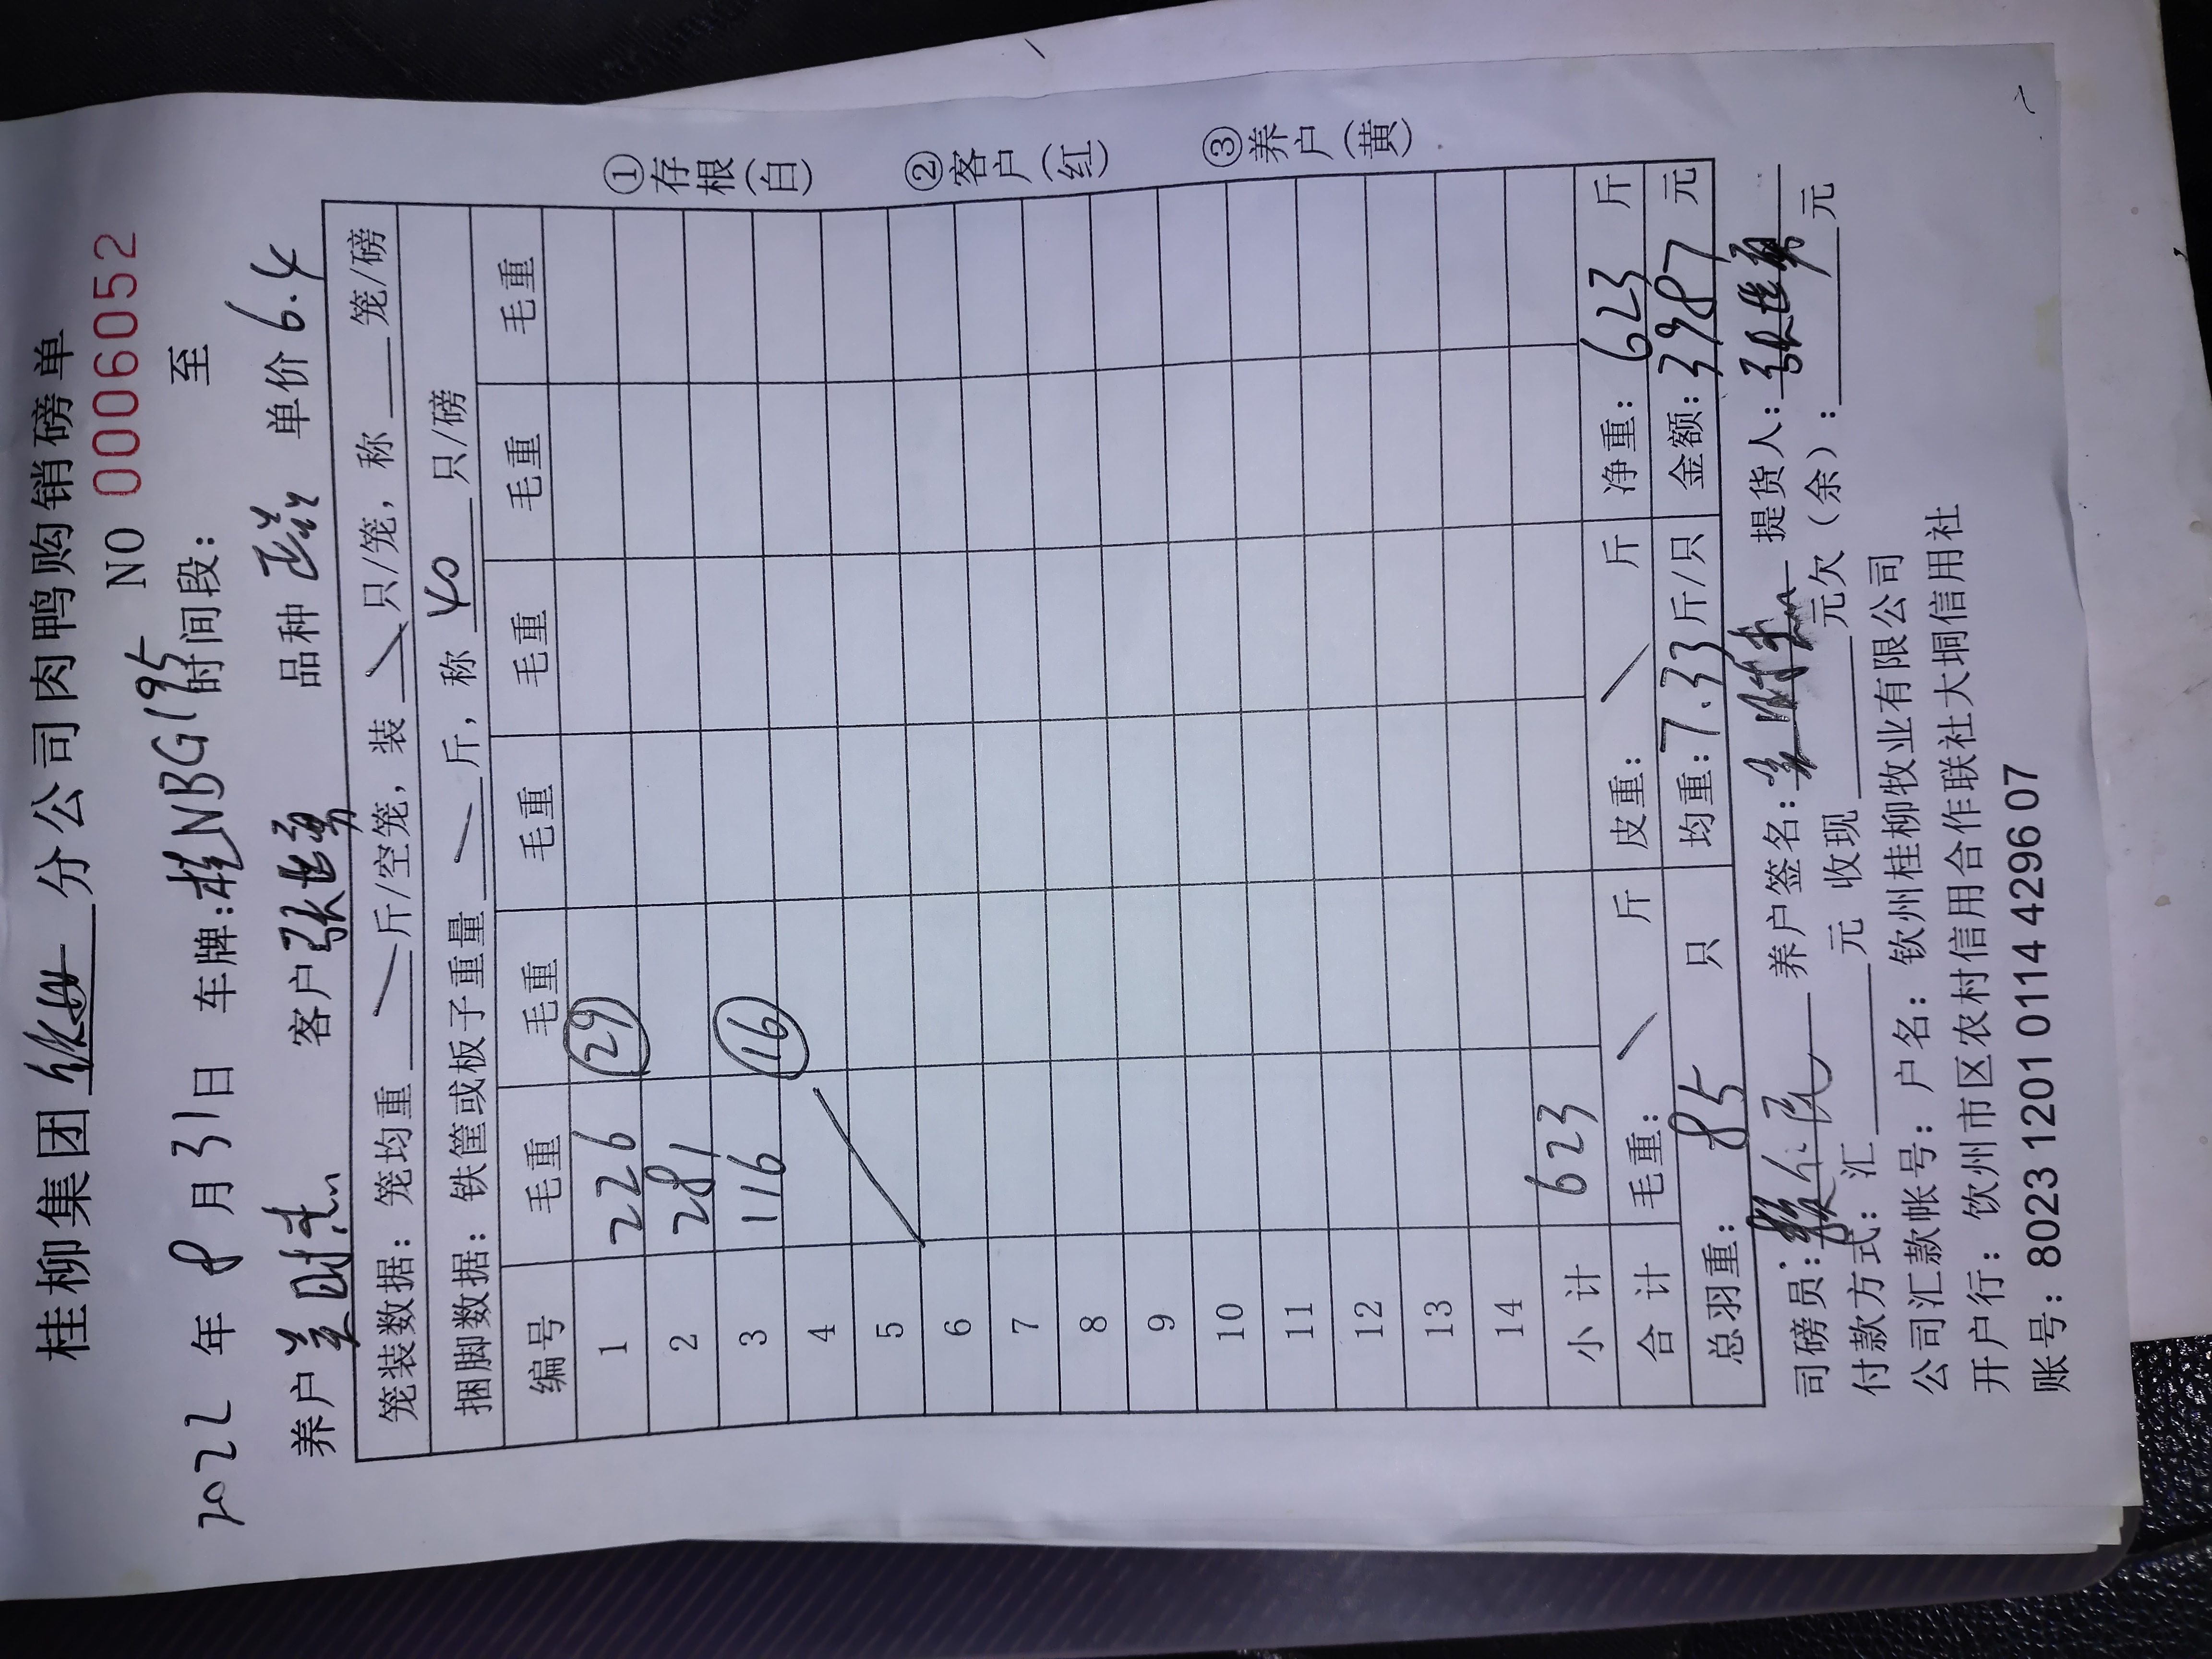 桂柳集团 分公司肉鸭购销磅单
NO 0006052
2022 年 8 月 31 日 车牌:桂NBG195 时间段: 至
养户 客户 张世勇 品种 单价 6.4
笼装数据: 笼均重 / 斤/空笼, 装 \ 只/笼, 称 笼/磅
捆脚数据: 铁筐或板子重量 / 斤, 称 40 只/磅
编号 毛重 毛重 毛重 毛重 毛重 毛重
1 226 29
2 281
3 116 16
4
5
6
7
8
9
10
11
12
13
14
小计 623
合计 毛重: / 斤 皮重: / 斤 净重: 623 斤
总羽重: 85 只 均重: 7.33 斤/只 金额: 3987 元
①存根(白) ②客户(红) ③养户(黄)
司磅员: 养户签名: 提货人: 张世勇
付款方式: 汇 元 收现 元欠(余): 元
公司汇款帐号: 户名: 钦州桂柳牧业有限公司
开户行: 饮州市区农村信用合作联社大垌信用社
账号: 8023 1201 0114 4296 07